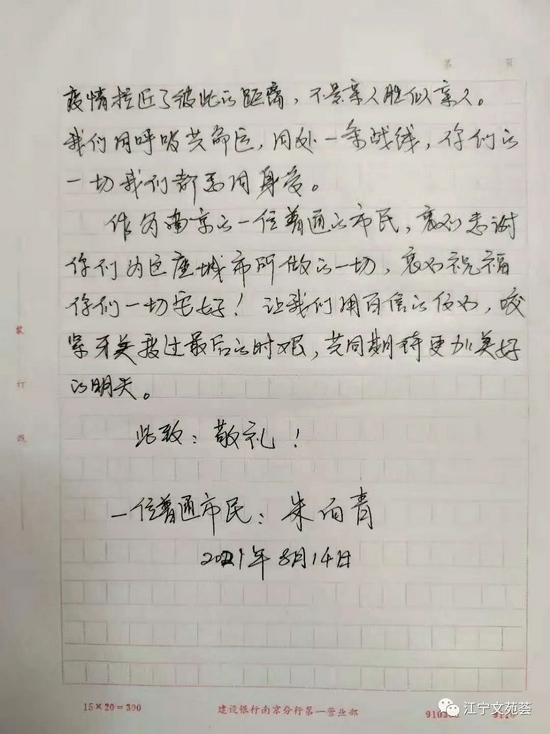 第 页
疫情拉近了彼此的距离，不是亲人胜似亲人。
我们同呼吸共命运，同处一条战线，你们的
一切我们都感同身受。
作为南京的一位普通的市民，衷心感谢
你们为这座城市所做的一切，衷心祝福
你们一切安好！让我们用百倍的信心，咬
紧牙关度过最后的时艰，共同期待更加美好
的明天。
此致：敬礼！
一位普通市民：朱向青
2021年8月14日
装
订
线
15×20=300
建设银行南京分行第一营业部
江宁文苑荟